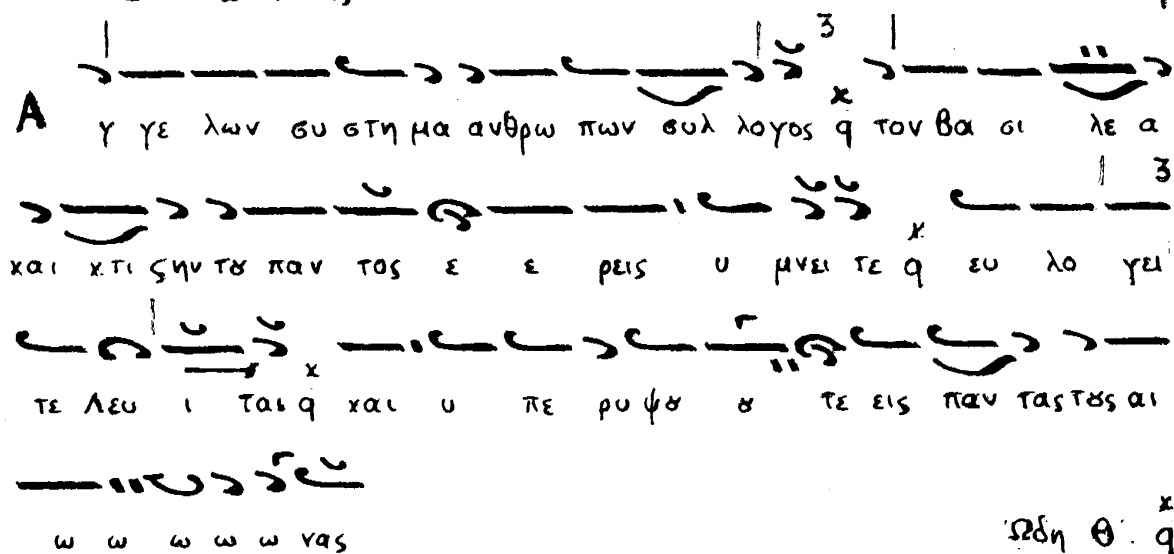 Αγ γε λων συ στη μα ανθρω πων συλ λογος q τον βα σι λε α
και κτι ςην τȣ παν τος ε ε ρεις υ μνει τε q ευ λο γει
τε Λευ ι ται q και υ πε ρυ ψȣ ȣ τε εις παν τας τȣς αι
ω ω ω ω ω νας
Ὠδη Θ΄. q